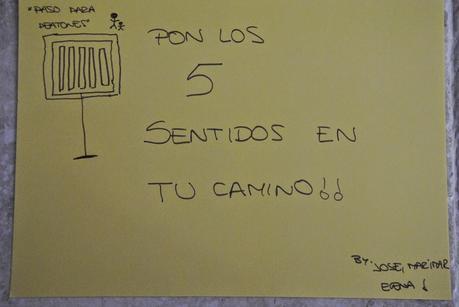 "PASO PARA
PEATONES"
PON LOS
5
SENTIDOS EN
TU CAMINO!!
BY: JOSE, MARIMAR
ELENA!